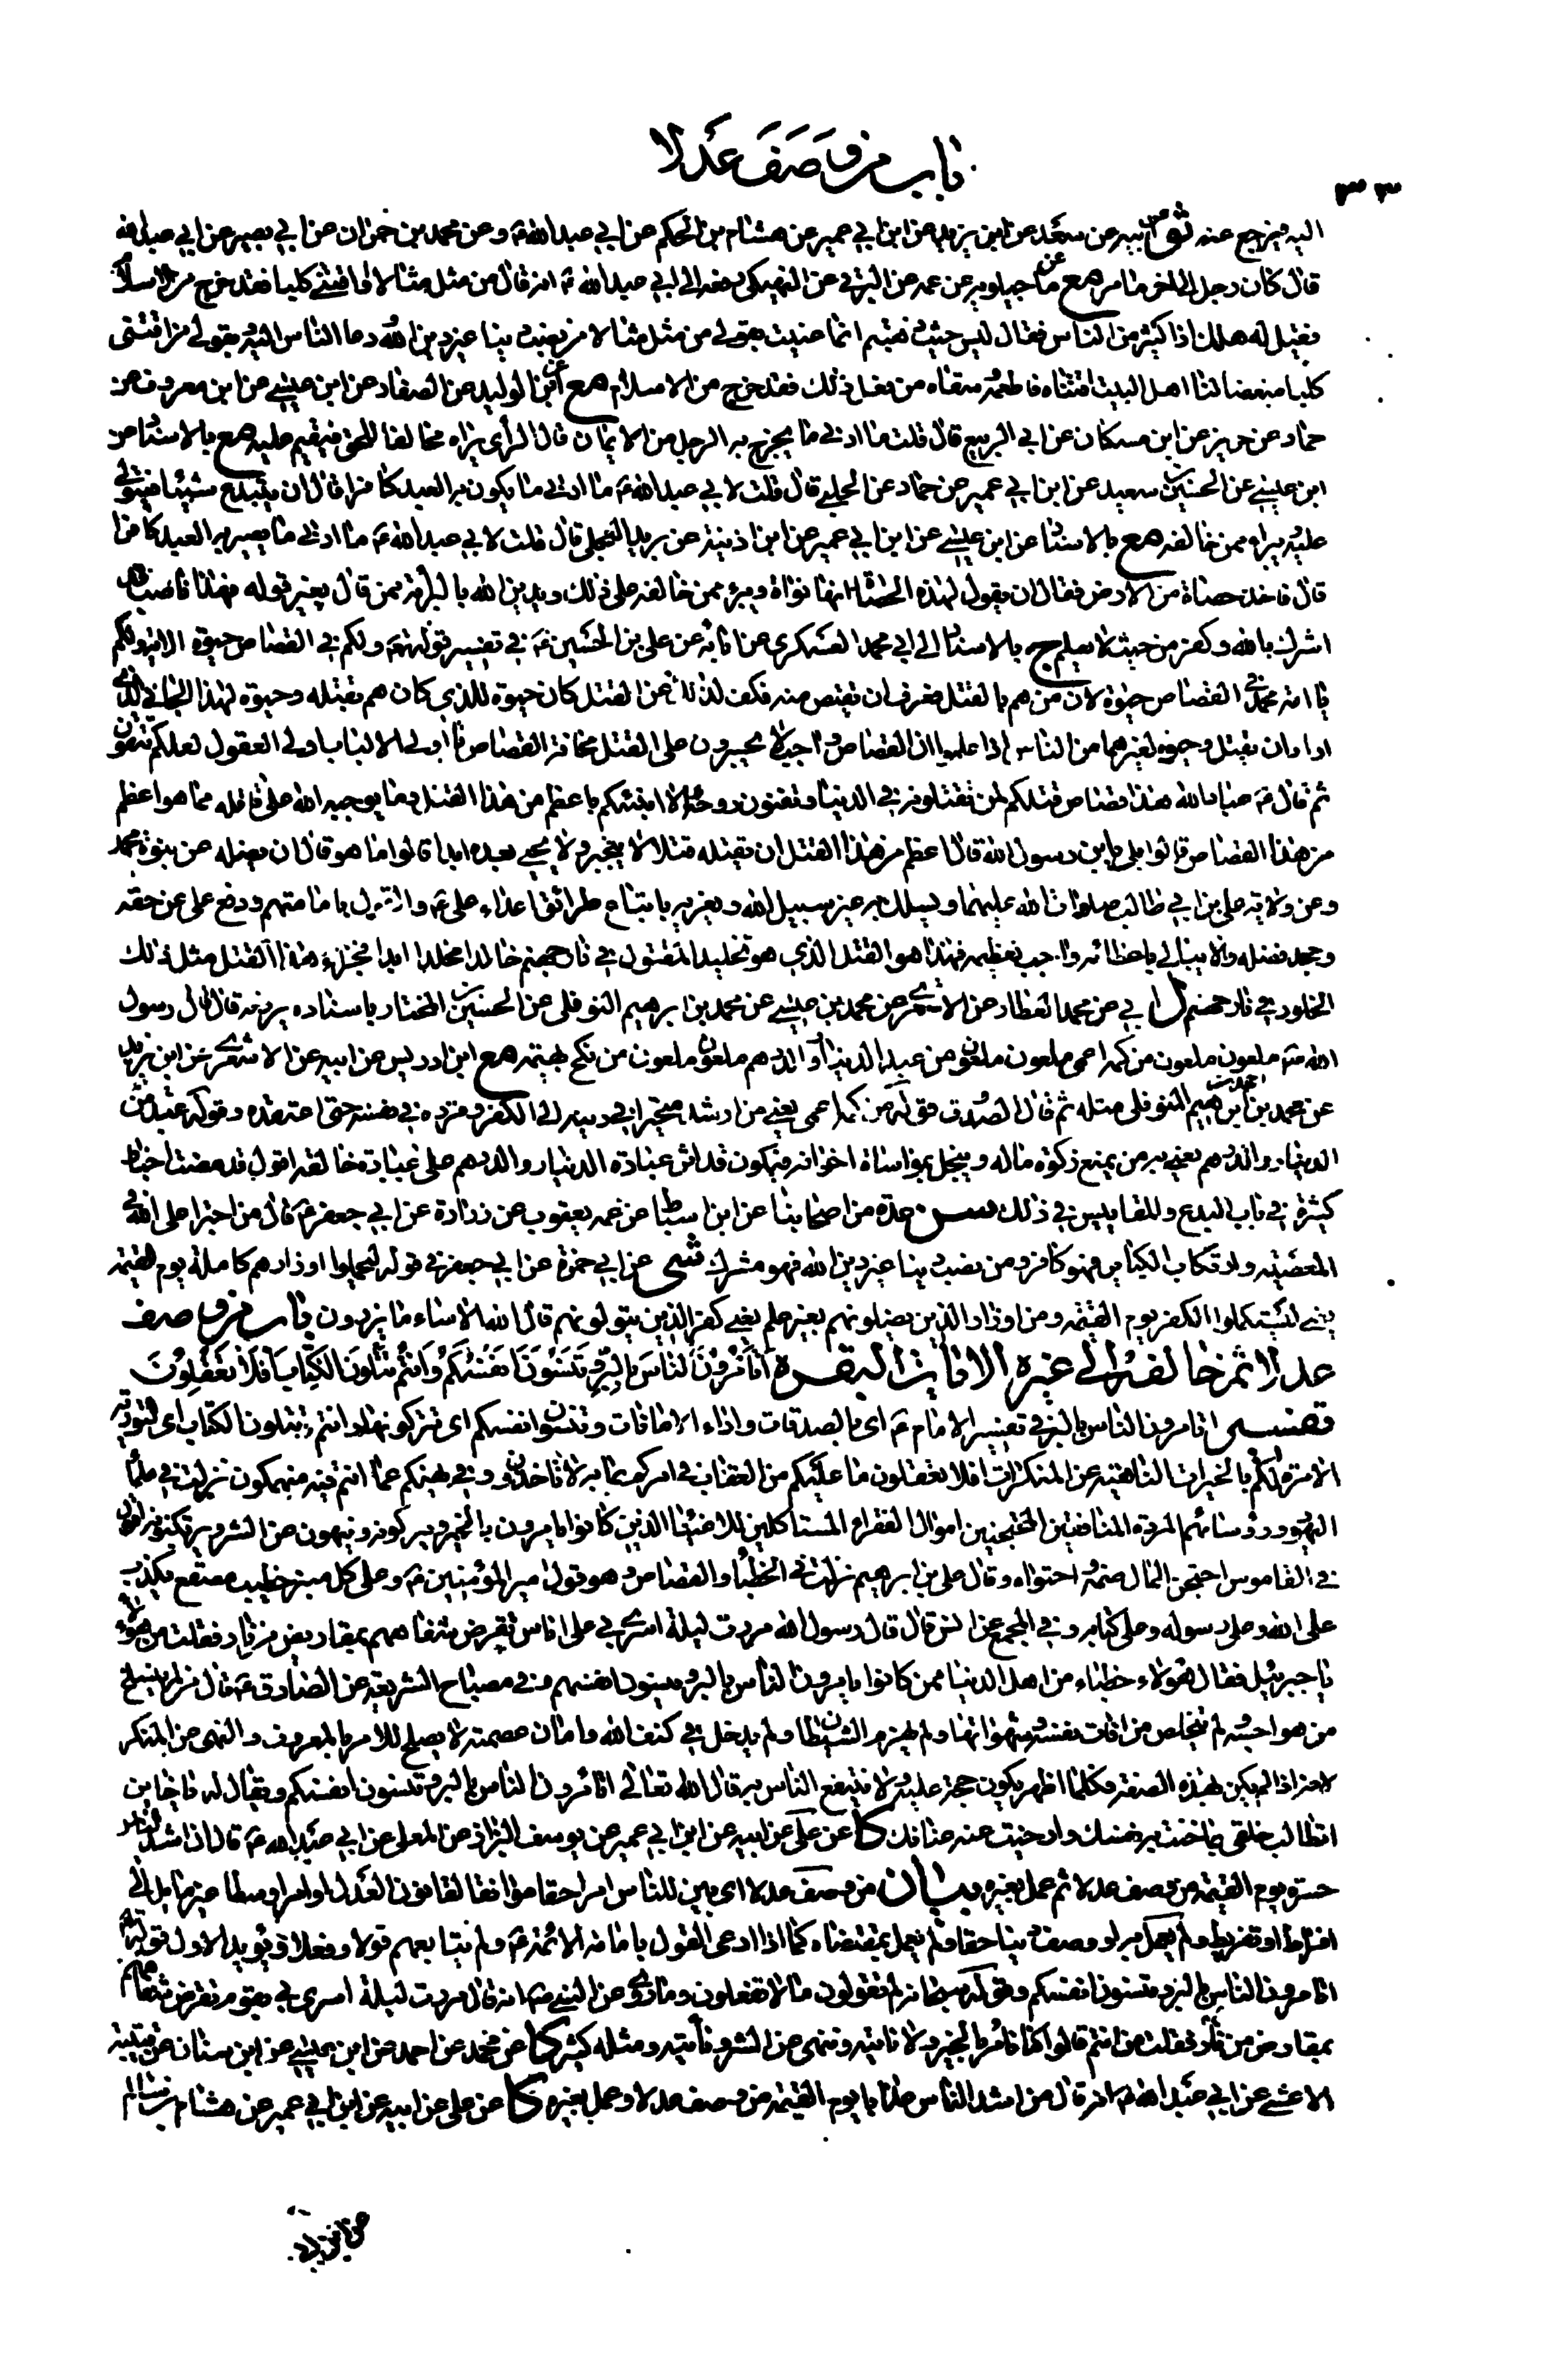 باب من وصف عدلا
٣٣
اليه فيرجع عنه ثو أبيه عن سعد عن ابن يزيد عن ابن ابي عمير عن هشام بن الحكم عن ابي عبد الله ع و عن محمد بن حمران عن ابي بصير عن ابي عبد الله
قال كان رجل الى اخر ما مر مع ماجيلويه عن عمه عن البرقي عن النهيكي رفعه الى ابي عبد الله ع انه قال من مثل مثالا او اقتنى كلبا فقد خرج من الاسلام
فقيل له هلك اذا كثير من الناس فقال ليس حيث ذهبتم انما عنيت بقولي من مثل مثالا من نصب دينا غير دين الله و دعا الناس اليه و بقولي من اقتنى
كلبا مبغضا لنا اهل البيت اقتناه فاطعمه و سقاه من فعل ذلك فقد خرج من الاسلام مع ابن الوليد عن الصفار عن ابن عيسى عن ابن معروف عن
حماد عن حريز عن ابن مسكان عن ابي الربيع قال قلت ما ادنى ما يخرج به الرجل من الايمان قال الرأي يراه مخالفا للحق فيقيم عليه مع بالاسناد عن
ابن عيسى عن الحسين بن سعيد عن ابن ابي عمير عن حماد عن الحلبي قال قلت لابي عبد الله ع ما ادنى ما يكون به العبد كافرا قال ان يبتدع شيئا فيتولى
عليه و يبرأ ممن خالفه مع بالاسناد عن ابن عيسى عن ابن ابي عمير عن ابن اذينة عن بريد العجلي قال قلت لابي عبد الله ع ما ادنى ما يصير به العبد كافرا
قال فاخذ حصاة من الارض فقال ان يقول لهذه الحصاة انها نواة و يبرء ممن خالفه على ذلك و يدين الله بالبراءة ممن قال بغير قوله فهذا ناصب قد
اشرك بالله و كفر من حيث لا يعلم ج بالاسناد الى ابي محمد العسكري عن ابائه عن علي بن الحسين ع في تفسير قوله تع و لكم في القصاص حيوة الاية و لكم
يا امة محمد في القصاص حيوة لان من هم بالقتل فعرف ان يقتص منه فكف لذلك عن القتل كان حيوة للذي كان هم بقتله و حيوة لهذا الجاني الذي
اراد ان يقتل و حيوة لغيرهما من الناس اذا علموا ان القصاص واجب لا يجسرون على القتل مخافة القصاص يا اولي الالباب اولي العقول لعلكم تتقون
ثم قال ع عباد الله هذا قصاص قتلكم لمن تقتلونه في الدنيا و تفنون روحه او لا انبئكم باعظم من هذا القتل و ما يوجبه الله على قاتله مما هو اعظم
من هذا القصاص قالوا بلى يا بن رسول الله قال اعظم من هذا القتل ان يقتله قتلا لا ينجبر و لا يحيى بعده ابدا قالوا ما هو قال ان يضله عن نبوة محمد
و عن ولاية علي بن ابي طالب صلوات الله عليهما و يسلك به غير سبيل الله و يغريه باتباع طرائق اعداء علي ع و القول بامامتهم و دفع علي عن حقه
و جحد فضله و الا يبالي باعطائه واجب تعظيمه فهذا هو القتل الذي هو تخليد المقتول في نار جهنم خالدا مخلدا ابدا فجزاء هذا القتل مثل ذلك
الخلود في نار جهنم ل ابي عن محمد العطار عن الاشعري عن محمد بن عيسى عن محمد بن ابرهيم النوفلي عن الحسين بن المختار باسناده يرفعه قال قال رسول
الله ص ملعون ملعون من كمه اعمى ملعون ملعون من عبد الدينار و الدرهم ملعون ملعون من نكح بهيمة مع ابن ادريس عن ابيه عن الاشعري عن ابن يزيد
عن محمد بن ابرهيم النوفلي مثله ثم قال الصدوق قوله من كمه اعمى يعني من ارشد متحيرا في دينه الى الكفر و قرره في نفسه حتى اعتقده و قوله عبد من
الدينار و الدرهم يعني به من يمنع زكوة ماله و يبخل بمواساة اخوانه فيكون قد اثر عبادة الدينار و الدرهم على عبادة خالقه اقول قد مضت اخبار
كثيرة في باب البدع و المقاييس في ذلك سن عدة من اصحابنا عن ابن اسباط عن عمه يعقوب عن زرارة عن ابي جعفر ع قال من اجترا على الله في
المعصية و ارتكاب الكبائر فهو كافر و من نصب دينا غير دين الله فهو مشرك شى عن ابي حمزة عن ابي جعفر في قوله ليحملوا اوزارهم كاملة يوم القيمة
يعني ليستكملوا الكفر يوم القيمة و من اوزار الذين يضلونهم بغير علم يعني كفر الذين يتولونهم قال الله الا ساء ما يزرون باب من وصف
عدلا ثم خالفه الى غيره الايات البقرة اتأمرون الناس بالبر و تنسون انفسكم و انتم تتلون الكتاب افلا تعقلون
تفسير اتأمرون الناس بالبر في تفسير الامام ع اي بالصدقات و اداء الامانات و تنسون انفسكم اي تتركونها و انتم تتلون الكتاب اي التورية
الامرة لكم بالخيرات الناهية عن المنكرات افلا تعقلون ما عليكم من العقاب في امركم بما به لا تاخذون و في نهيكم عما انتم فيه منهمكون نزلت في علماء
اليهود و رؤسائهم المردة المنافقين المحتجنين اموال الفقراء المستاكلين للاغنياء الذين كانوا يامرون بالخير و يتركونه و ينهون عن الشر و يرتكبونه اقول
في القاموس احتجن المال ضمه و احتواه و قال علي بن ابرهيم نزلت في الخطباء و القصاص و هو قول امير المؤمنين ع و على كل منبر خطيب مصقع يكذب
على الله و على رسوله و على كتابه و في المجمع عن انس قال قال رسول الله مررت ليلة اسري بي على اناس تقرض شفاههم بمقاريض من نار فقلت من هؤلاء
يا جبرئيل فقال هؤلاء خطباء من اهل الدنيا ممن كانوا يامرون الناس بالبر و ينسون انفسهم و في مصباح الشريعة عن الصادق ع قال من لم ينسلخ
من هواجسه و لم يتخلص من افات نفسه و شهواتها و لم يهزم الشيطان و لم يدخل في كنف الله و امان عصمته لا يصلح للامر بالمعروف و النهي عن المنكر
لانه اذا لم يكن بهذه الصفة فكلما اظهر يكون حجة عليه و لا ينتفع الناس به قال الله تعالى اتأمرون الناس بالبر و تنسون انفسكم و يقال له يا خاين
اتطالب خلقي بما خنت به نفسك و ارخيت عنه عنانك كا عن علي عن ابيه عن ابن ابي عمير عن يوسف البزاز عن المعلى عن ابي عبد الله ع قال ان اشد الناس
حسرة يوم القيمة من وصف عدلا ثم عمل بغيره بيان من وصف عدلا اي بين للناس امرا حقا موافقا لقانون العدل او امرا وسطا غير مايل الى
افراط او تفريط و لم يعمل به او وصف دينا حقا و لم يعمل بمقتضاه كما اذا ادعى القول بامامة الائمة ع و لم يتابعهم قولا و فعلا و يؤيد الاول قوله تع
اتأمرون الناس بالبر و تنسون انفسكم و قوله سبحانه لم تقولون ما لا تفعلون و ما روي عن النبي ص انه قال مررت ليلة اسري بي بقوم تقرض شفاههم
بمقاريض من نار فقلت من انتم قالوا كنا نأمر بالخير و لا ناتيه و ننهى عن الشر و نأتيه و مثله كثير كا عن محمد عن احمد عن ابن عيسى عن ابن سنان عن قتيبة
الاعشى عن ابي عبد الله ع انه قال من اشد الناس عذابا يوم القيمة من وصف عدلا و عمل بغيره كا عن علي عن ابيه عن ابن ابي عمير عن هشام بن سالم